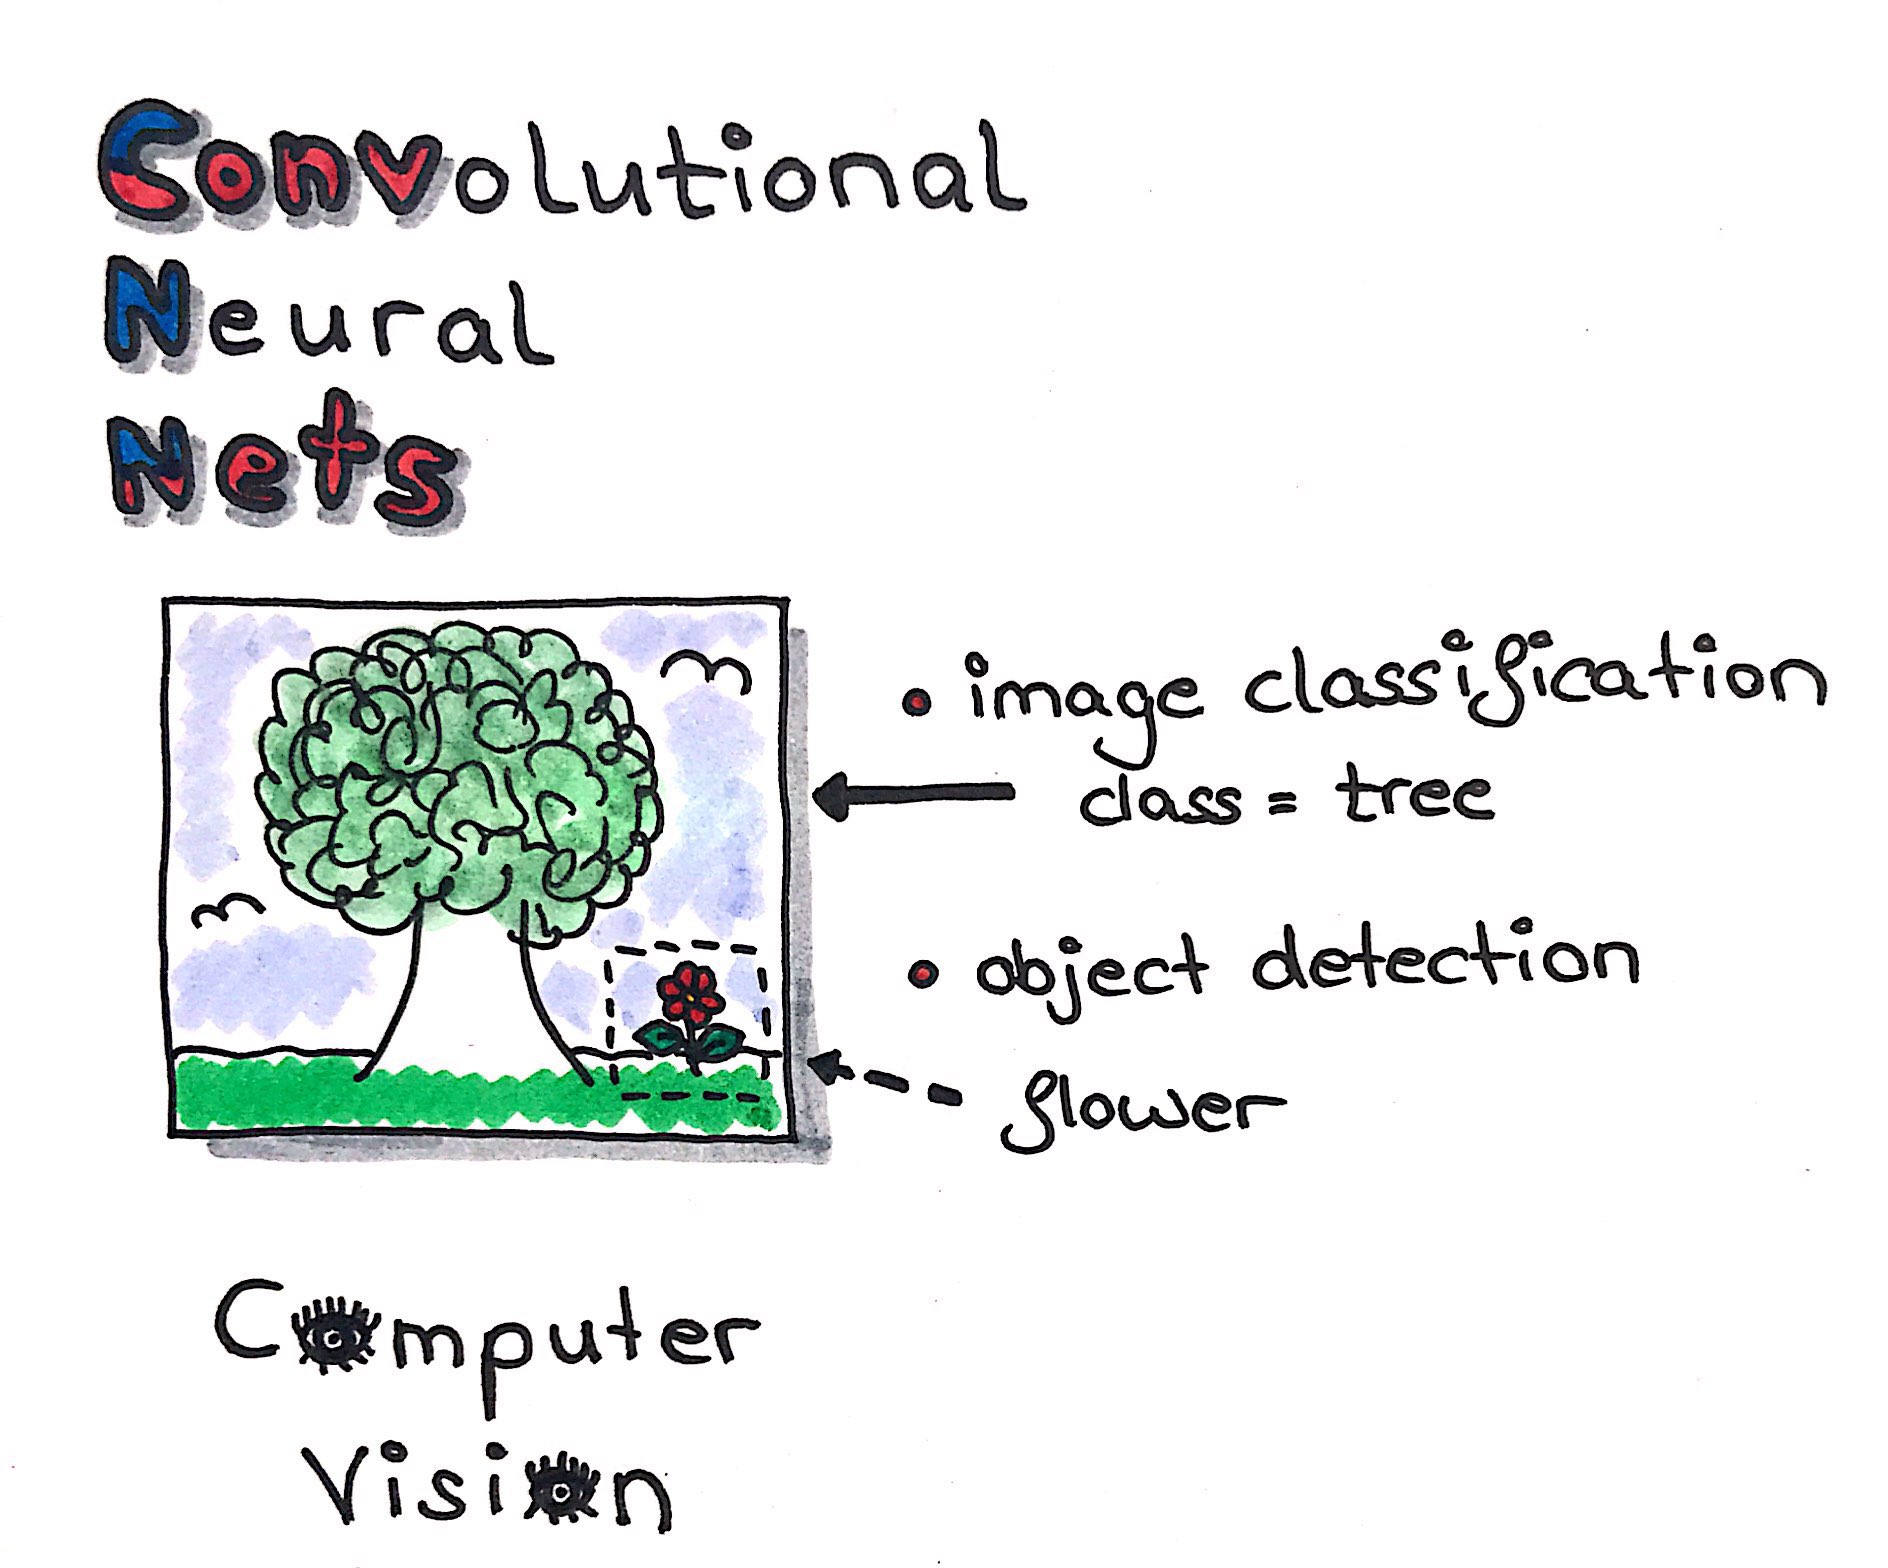 Convolutional
Neural
Nets
• image classification
class = tree
• object detection
flower
Computer
Vision